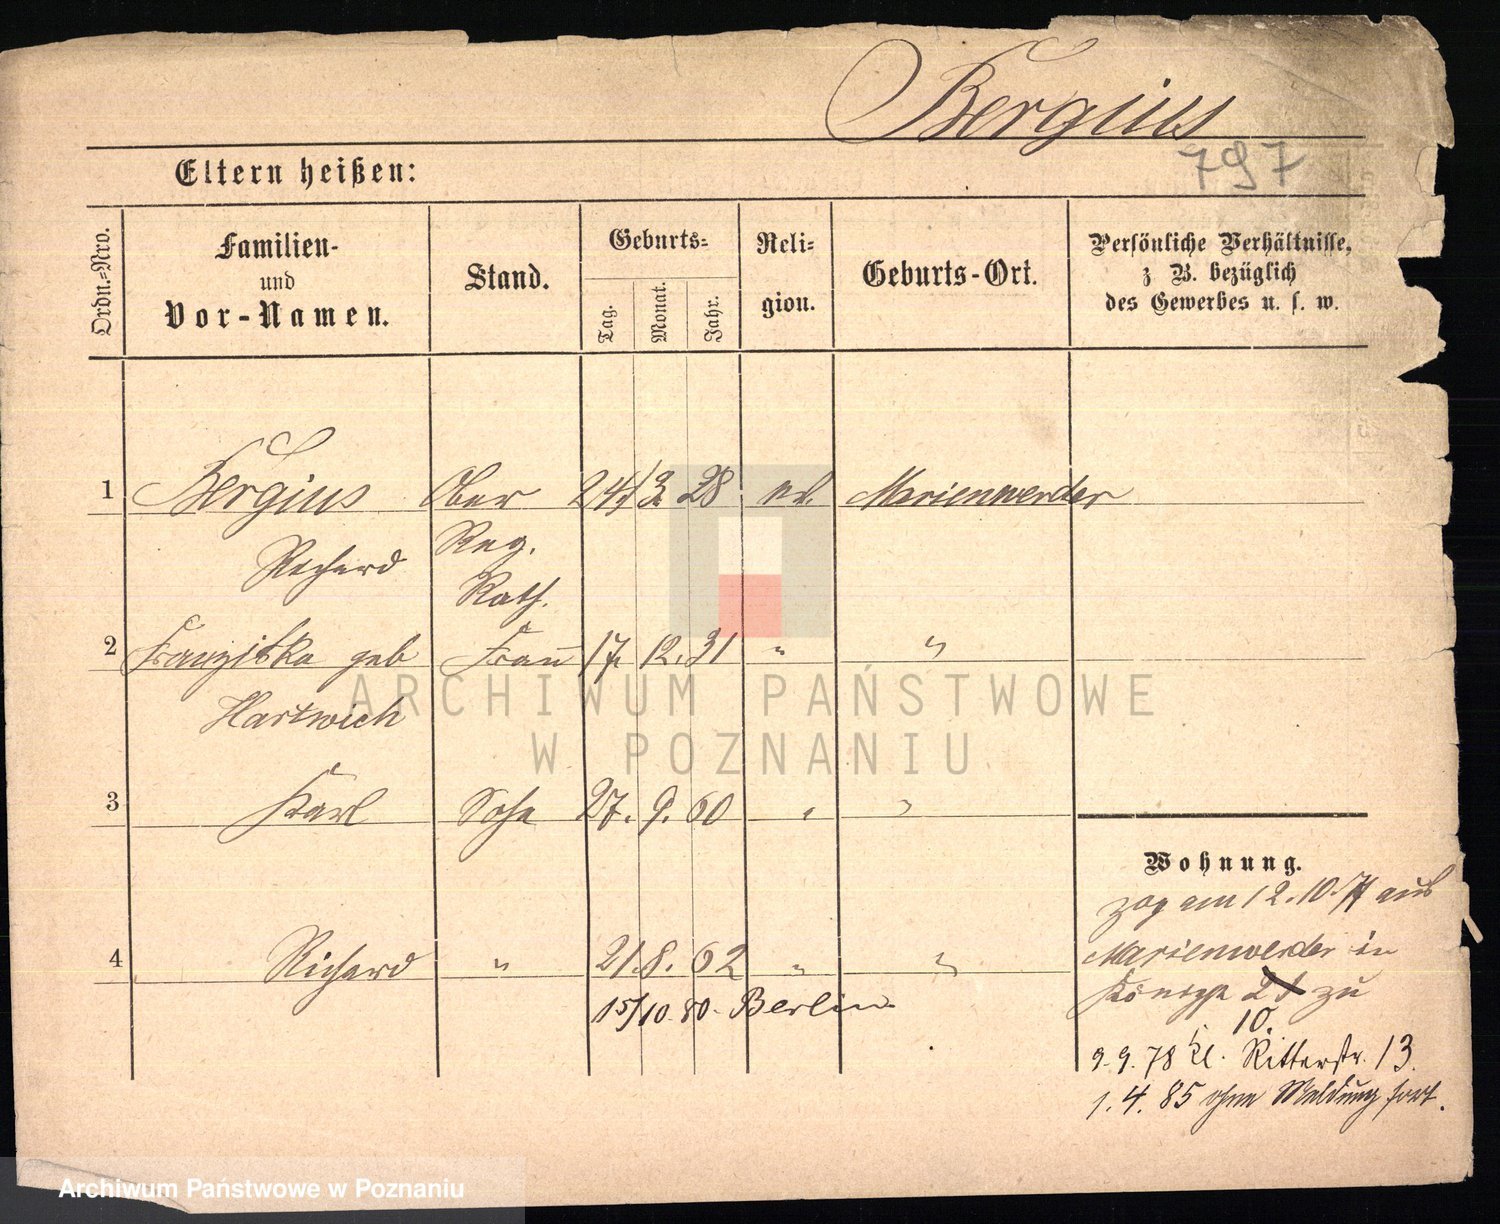 Bergius
797
Eltern heißen:
Ordn.-Nro.
Familien-
und
Vor-Namen.
Stand.
Geburts-
Tag.
Monat.
Jahr.
Reli-
gion.
Geburts-Ort.
Persönliche Verhältnisse,
z B. bezüglich
des Gewerbes u. s. w.
1 Bergius Ober 24. 3. 28 ev. Marienwerder
Richard Reg.
Rath.
2 Franziska geb Frau 17. 12. 31 " "
Hartwich
3 Karl Sohn 27. 9. 60 " "
4 Richard " 21. 8. 62 " "
15/10 80. Berlin
Wohnung.
zog am 12. 10. 74 aus
Marienwerder in
zu
10.
9. 9. 78 kl. Ritterstr. 13.
1. 4. 85 ohne Meldung fort.
ARCHIWUM PAŃSTWOWE
W POZNANIU
Archiwum Państwowe w Poznaniu